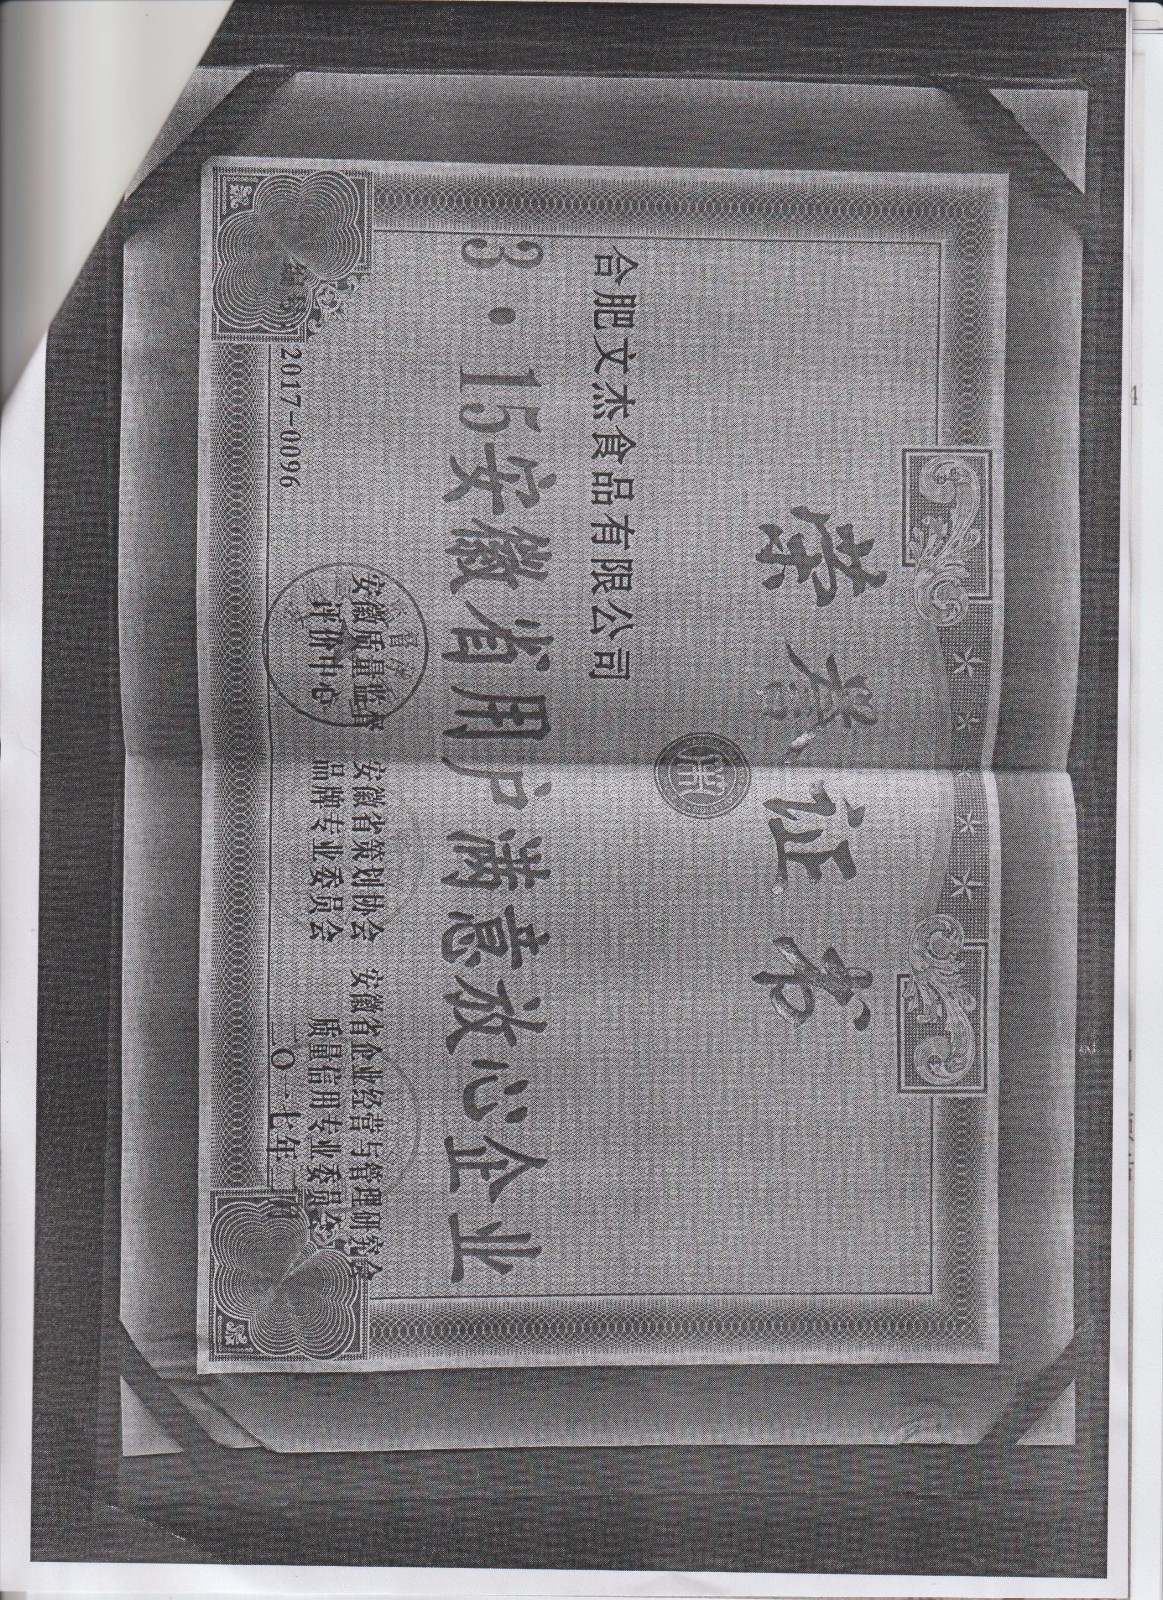 荣誉证书
合肥文杰食品有限公司
3·15安徽省用户满意放心企业
安徽质量监督
评价中心
安徽省策划协会
品牌专业委员会
安徽省企业经营与管理研究会
质量信用专业委员会
编号:2017-0096
〇一七年